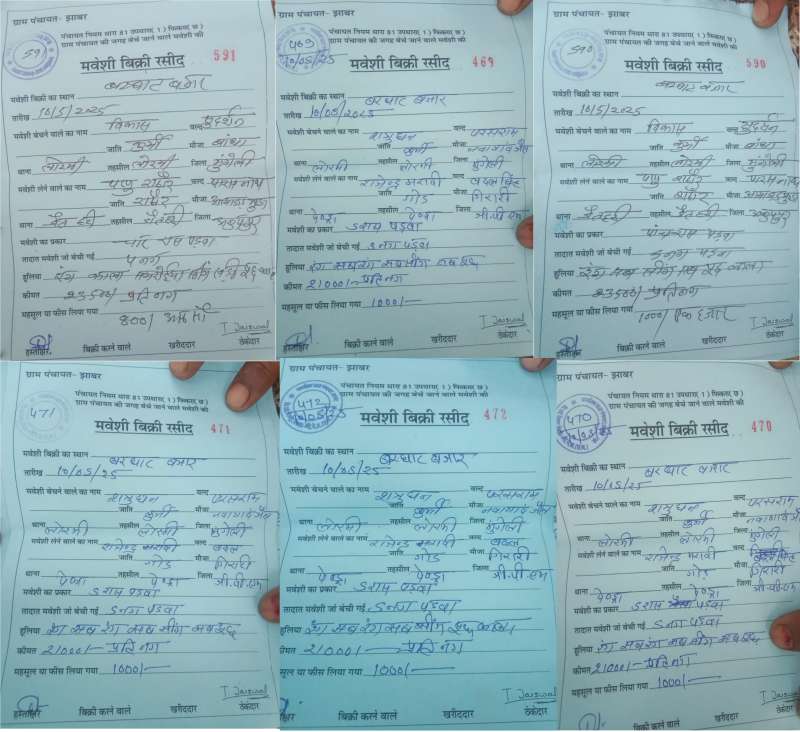 ग्राम पंचायत- झाबर
पंचायत नियम धारा 81 उपधारा( 1 ) पिकला( छ )
ग्राम पंचायत की जगह बेचे जाने वाले मवेशी की
591
मवेशी बिक्री रसीद 591
मवेशी बिक्री का स्थान बरघाट बजार
तारीख 10/5/2025
मवेशी बेचने वाले का नाम विकास वल्द
जाति कुर्मी मौजा बांधा
थाना लोरमी तहसील लोरमी जिला मुंगेली
मवेशी लेने वाले का नाम पप्पु राठौर वल्द
जाति राठौर मौजा
थाना तहसील जिला
मवेशी का प्रकार चार रास पडवा
तादात मवेशी जो बेची गई 4 नग
हुलिया रंग काला
कीमत 23500/ प्रति नग
महसूल या फीस लिया गया 800/ आठ सौ
T Jaiswal
हस्ताक्षर बिक्री करने वाले खरीददार ठेकेदार
पंचायत नियम धारा 81 उपधारा( 1 ) पिकला( छ )
ग्राम पंचायत की जगह बेचे जाने वाले मवेशी की
469
10/05/25
मवेशी बिक्री रसीद 469
मवेशी बिक्री का स्थान बरघाट बजार
तारीख 10/05/2025
मवेशी बेचने वाले का नाम शत्रुघन वल्द परसराम
जाति कुर्मी मौजा नवागांव जैत
थाना लोरमी तहसील लोरमी जिला मुंगेली
मवेशी लेने वाले का नाम राजेन्द्र मरावी वल्द
जाति गोड मौजा गिरारी
थाना पेण्ड्रा तहसील पेण्ड्रा जिला जी.पी.एम
मवेशी का प्रकार 5 रास पडवा
तादात मवेशी जो बेची गई 5 नग पडवा
हुलिया रंग सब रंग सब सींग सब
कीमत 21000/- प्रति नग
महसूल या फीस लिया गया 1000/-
T Jaiswal
हस्ताक्षर बिक्री करने वाले खरीददार ठेकेदार
ग्राम पंचायत- झाबर
पंचायत नियम धारा 81 उपधारा( 1 ) पिकला( छ )
ग्राम पंचायत की जगह बेचे जाने वाले मवेशी की
590
मवेशी बिक्री रसीद 590
मवेशी बिक्री का स्थान बरघाट बजार
तारीख 10/5/2025
मवेशी बेचने वाले का नाम विकास वल्द
जाति कुर्मी मौजा बांधा
थाना लोरमी तहसील लोरमी जिला मुंगेली
मवेशी लेने वाले का नाम पप्पु राठौर वल्द
जाति राठौर मौजा
थाना तहसील जिला
मवेशी का प्रकार पांच रास पडवा
तादात मवेशी जो बेची गई 5 नग पडवा
हुलिया रंग सब सींग सब
कीमत 23500/ प्रति नग
महसूल या फीस लिया गया 1000/ एक हजार
T Jaiswal
हस्ताक्षर बिक्री करने वाले खरीददार ठेकेदार
ग्राम पंचायत- झाबर
पंचायत नियम धारा 81 उपधारा( 1 ) पिकला( छ )
ग्राम पंचायत की जगह बेचे जाने वाले मवेशी की
471
मवेशी बिक्री रसीद 471
मवेशी बिक्री का स्थान बरघाट बजार
तारीख 10/05/25
मवेशी बेचने वाले का नाम शत्रुघन वल्द परसराम
जाति कुर्मी मौजा नवागांव जैत
थाना लोरमी तहसील लोरमी जिला मुंगेली
मवेशी लेने वाले का नाम राजेन्द्र मरावी वल्द
जाति गोड मौजा गिरारी
थाना पेण्ड्रा तहसील पेण्ड्रा जिला जी.पी.एम
मवेशी का प्रकार 5 रास पडवा
तादात मवेशी जो बेची गई 5 नग पडवा
हुलिया रंग सब रंग सब सींग सब
कीमत 21000/- प्रति नग
महसूल या फीस लिया गया 1000/-
T Jaiswal
हस्ताक्षर बिक्री करने वाले खरीददार ठेकेदार
ग्राम पंचायत- झाबर
पंचायत नियम धारा 81 उपधारा( 1 ) पिकला( छ )
ग्राम पंचायत की जगह बेचे जाने वाले मवेशी की
472
10/05/25
मवेशी बिक्री रसीद 472
मवेशी बिक्री का स्थान बरघाट बजार
तारीख 10/05/25
मवेशी बेचने वाले का नाम शत्रुघन वल्द परसराम
जाति कुर्मी मौजा नवागांव जैत
थाना लोरमी तहसील लोरमी जिला मुंगेली
मवेशी लेने वाले का नाम राजेन्द्र मरावी वल्द
जाति गोड मौजा गिरारी
थाना पेण्ड्रा तहसील पेण्ड्रा जिला जी.पी.एम
मवेशी का प्रकार 5 रास पडवा
तादात मवेशी जो बेची गई 5 नग पडवा
हुलिया रंग सब रंग सब सींग
कीमत 21000/- प्रति नग
सूल या फीस लिया गया 1000/-
T Jaiswal
हस्ताक्षर बिक्री करने वाले खरीददार ठेकेदार
ग्राम पंचायत- झाबर
पंचायत नियम धारा 81 उपधारा( 1 ) पिकला( छ )
ग्राम पंचायत की जगह बेचे जाने वाले मवेशी की
470
मवेशी बिक्री रसीद 470
मवेशी बिक्री का स्थान बरघाट बजार
तारीख 10/05/25
मवेशी बेचने वाले का नाम शत्रुघन वल्द परसराम
जाति कुर्मी मौजा नवागांव जैत
थाना लोरमी तहसील लोरमी जिला मुंगेली
मवेशी लेने वाले का नाम राजेन्द्र मरावी वल्द
जाति गोड मौजा गिरारी
थाना पेण्ड्रा तहसील पेण्ड्रा जिला जी.पी.एम
मवेशी का प्रकार 5 रास पडवा
तादात मवेशी जो बेची गई 5 नग पडवा
हुलिया रंग सब रंग सब सींग सब
कीमत 21000/- प्रति नग
महसूल या फीस लिया गया 1000/-
T Jaiswal
हस्ताक्षर बिक्री करने वाले खरीददार ठेकेदार